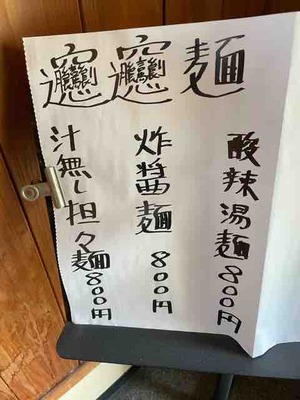 𰻞𰻞麺
酸辣湯麺800円
炸醤麺 800円
汁無し担々麺800円